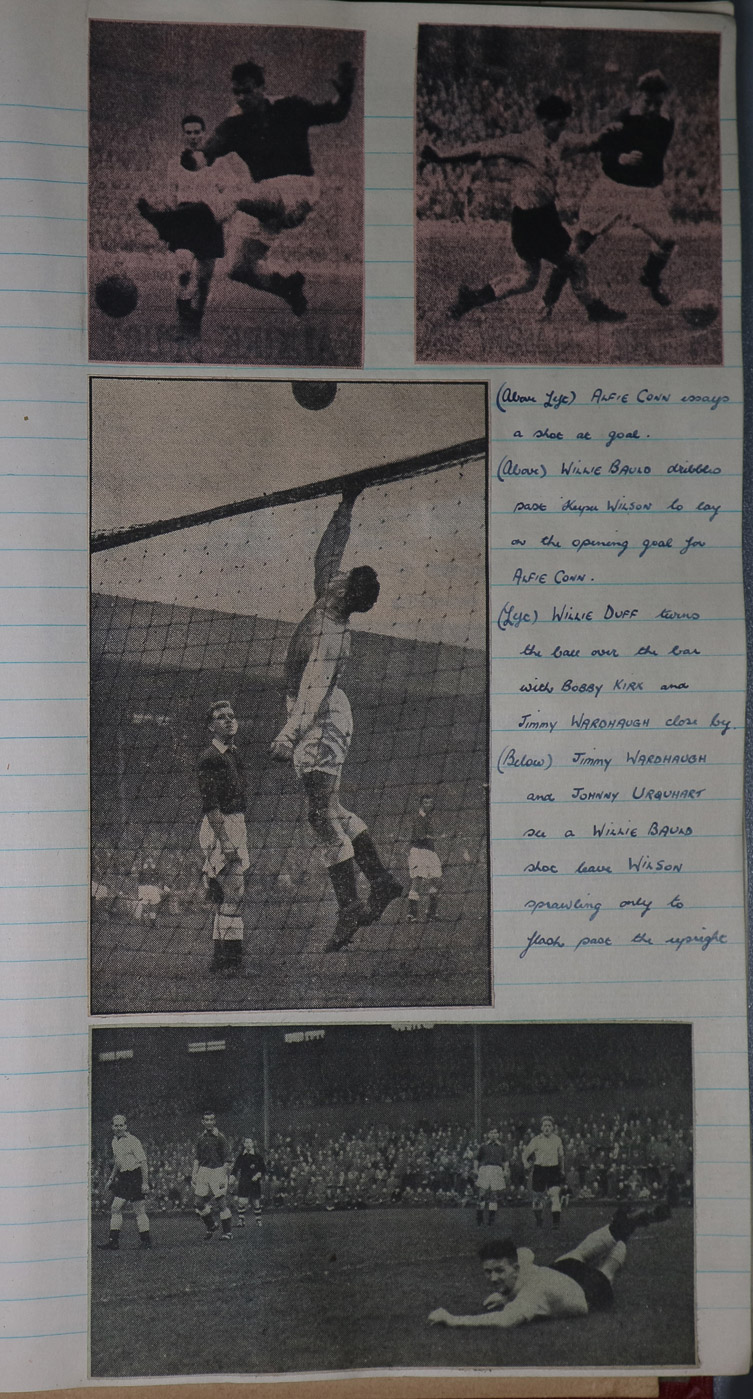 (Above Left) ALFIE CONN essays
a shot at goal.
(Above) WILLIE BAULD dribbles
past Keeper WILSON to lay
on the opening goal for
ALFIE CONN.
(Left) WILLIE DUFF turns
the ball over the bar
with BOBBY KIRK and
Jimmy WARDHAUGH close by.
(Below) Jimmy WARDHAUGH
and JOHNNY URQUHART
see a WILLIE BAULD
shot leave WILSON
sprawling only to
flash past the upright